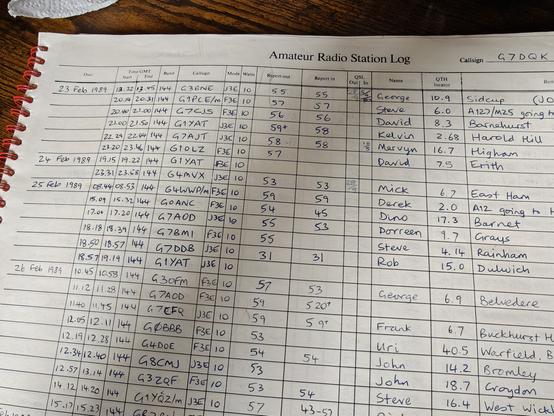 Amateur Radio Station Log
Callsign G7DQK
Date Time GMT Start End Band Callsign Mode Watts Report out Report in QSL Out In Name QTH locator
23 Feb 1989 144 G3GNE J3E 10 55 55 George 10.9 Sidcup
20.31 144 G1PCE/m F3E 10 57 57 Steve 6.0 A127/M25 going to
21.00 144 G7CJS F3E 10 56 56 David 8.3 Barnehurst
21.00 21.50 144 G1YAT J3E 10 59+ 58 Kelvin 2.68 Harold Hill
22.29 22.44 144 G7AJT F3E 10 58 58 Mervyn 16.7 Higham
23.20 144 G1OLZ J3E 10 57 David 7.5 Erith
24 Feb 1989 19.15 19.22 144 G1YAT F3E 10
23.31 23.58 144 G4MVX J3E 10 53 53 Mick 6.7 East Ham
25 Feb 1989 08.44 08.53 144 G4WWP/m F3E 10 59 59 Derek 2.0 A12 going to
15.09 15.32 144 G0ANC F3E 10 54 45 Dino 17.3 Barnet
17.00 17.20 144 G7AOD J3E 10 55 53 Dorreen 9.7 Grays
18.18 18.39 144 G7BMI F3E 10 55 Steve 4.14 Rainham
18.50 18.57 144 G7DDB J3E 10 31 31 Rob 15.0 Dulwich
18.57 19.19 144 G1YAT J3E 10
26 Feb 1989 10.45 10.53 144 G3OFM F3E 10 57 53 George 6.9 Belvedere
11.12 11.28 144 G7AOD F3E 10 59 520+
11.40 11.45 144 F3E 10 59 59+ Frank 6.7 Buckhurst H
12.05 12.11 144 GØBBB F3E 10 53 Uri 40.5 Warfield, B
12.19 12.28 144 G4DOE F3E 10 54 54 John 14.2 Bromley
12.34 12.40 144 G8CMJ J3E 10 53 John 18.7 Croydon
12.57 13.14 144 G3ZQF F3E 10 53 54 Steve 16.4 West
14.12 14.20 144 G1YQZ/m J3E 10 57 43-57
15.17 15.23 144